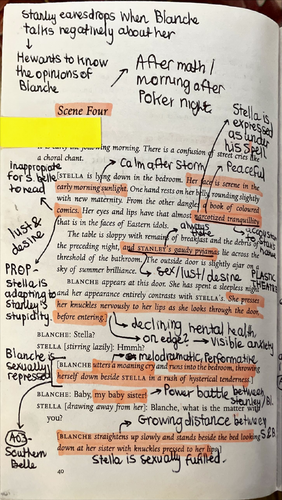 Stanley eavesdrops when Blanche
talks negatively about her
He wants to know
the opinions of
Blanche
After math /
morning after
Poker night
Scene Four
Stella is
expressed
as under
his spell
following morning. There is a confusion of street cries like
a choral chant.
calm after storm
Peaceful
inappropriate
for S. belle
to read
STELLA is lying down in the bedroom. Her face is serene in the
early morning sunlight. One hand rests on her belly, rounding slightly
with new maternity. From the other dangles a book of coloured
comics. Her eyes and lips have that almost narcotized tranquility
that is in the faces of Eastern idols.
always there
lust &
desire
The table is sloppy with remains of breakfast and the debris of
the preceding night, and STANLEY'S gaudy pyjamas lie across the
threshold of the bathroom. The outside door is slightly ajar on a
sky of summer brilliance.
sex/lust/desire
PLASTIC
THEATRE
PROP-
stella is
adapting to
stanley's
stupidity
BLANCHE appears at this door. She has spent a sleepless night
and her appearance entirely contrasts with STELLA'S. She presses
her knuckles nervously to her lips as she looks through the door,
before entering.
declining mental health
on edge? → visible anxiety
BLANCHE: Stella?
STELLA [stirring lazily]: Hmmh?
melodramatic, Performative
Blanche is
sexually
repressed
[BLANCHE utters a moaning cry and runs into the bedroom, throwing
herself down beside STELLA in a rush of hysterical tenderness.]
BLANCHE: Baby, my baby sister!
Power battle between
Stanley / Bl.
STELLA [drawing away from her]: Blanche, what is the matter with
you?
Growing distance between
S & B
AO3-
Southern
Belle
[BLANCHE straightens up slowly and stands beside the bed looking
down at her sister with knuckles pressed to her lips.]
40
Stella is sexually fulfilled.